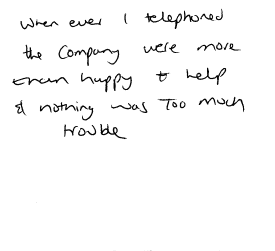 When ever I telephoned
the Company were more
than happy to help
& nothing was Too much
trouble